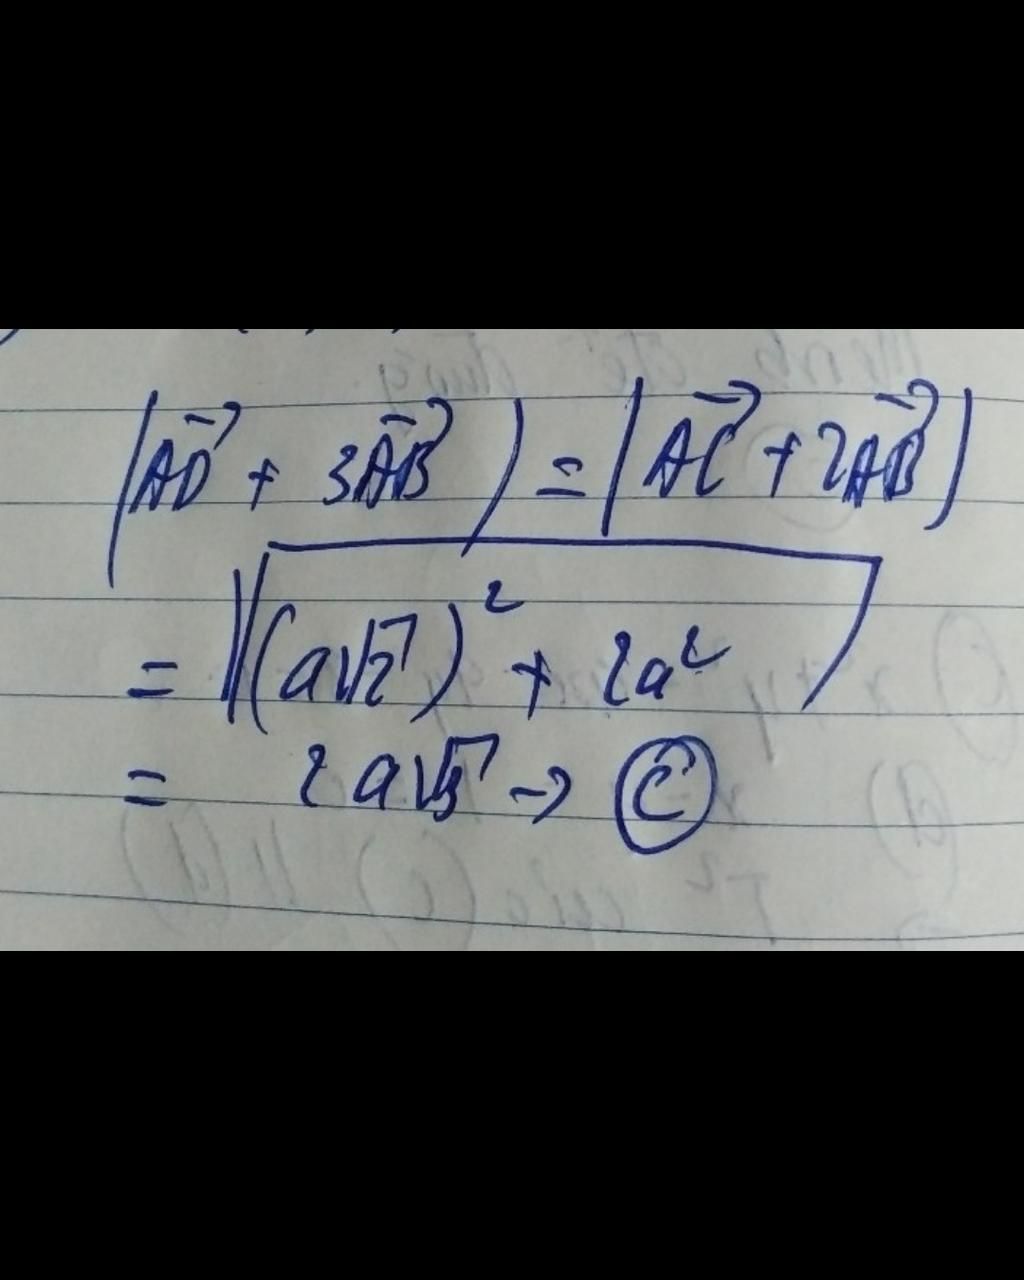 |AD⃗ + 3AB⃗| = |AC⃗ + 2AB⃗|
= √((a√2)² + 2a²)
= 2a√3 → Ⓒ